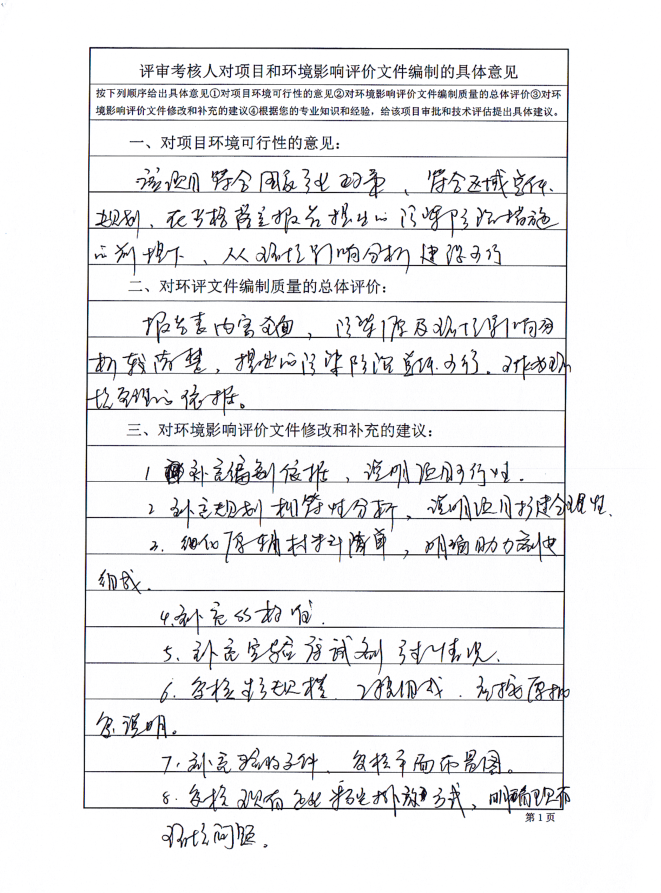 评审考核人对项目和环境影响评价文件编制的具体意见
按下列顺序给出具体意见①对项目环境可行性的意见②对环境影响评价文件编制质量的总体评价③对环
境影响评价文件修改和补充的建议④根据您的专业知识和经验，给该项目审批和技术评估提出具体建议。
一、对项目环境可行性的意见：
该项目符合国家产业政策、符合区域总体
规划，在严格落实报告提出的污染防治措施
的前提下，从环境影响分析建设可行
二、对环评文件编制质量的总体评价：
报告表内容全面，污染源及环境影响分
析较清楚，提出的污染防治总体可行。可作为环
境管理的依据。
三、对环境影响评价文件修改和补充的建议：
1 补充编制依据，说明项目可行性.
2 补充规划相符性分析，说明项目扩建合理性.
3. 细化原辅材料清单，明确助力剂
组成.
4.补充 标准.
5、补充实验 试剂 情况.
6、复核生产规模、工程组成.
说明。
7、补充 条件、复核平面布置图。
8、复核现有 排放方式，明确现有
环境问题。
第 1 页